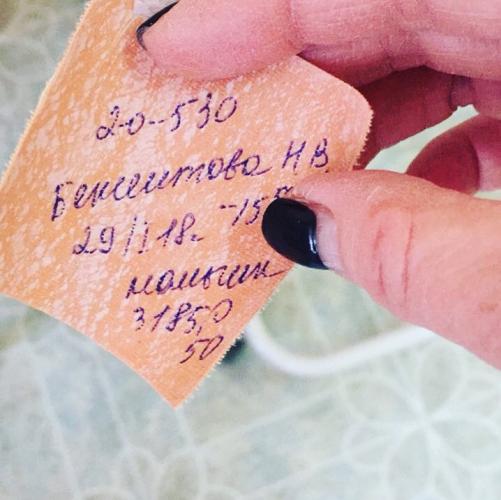 20-530
Бексеитова Н В
29/I 18г. -15
мальчик
3185,0
50